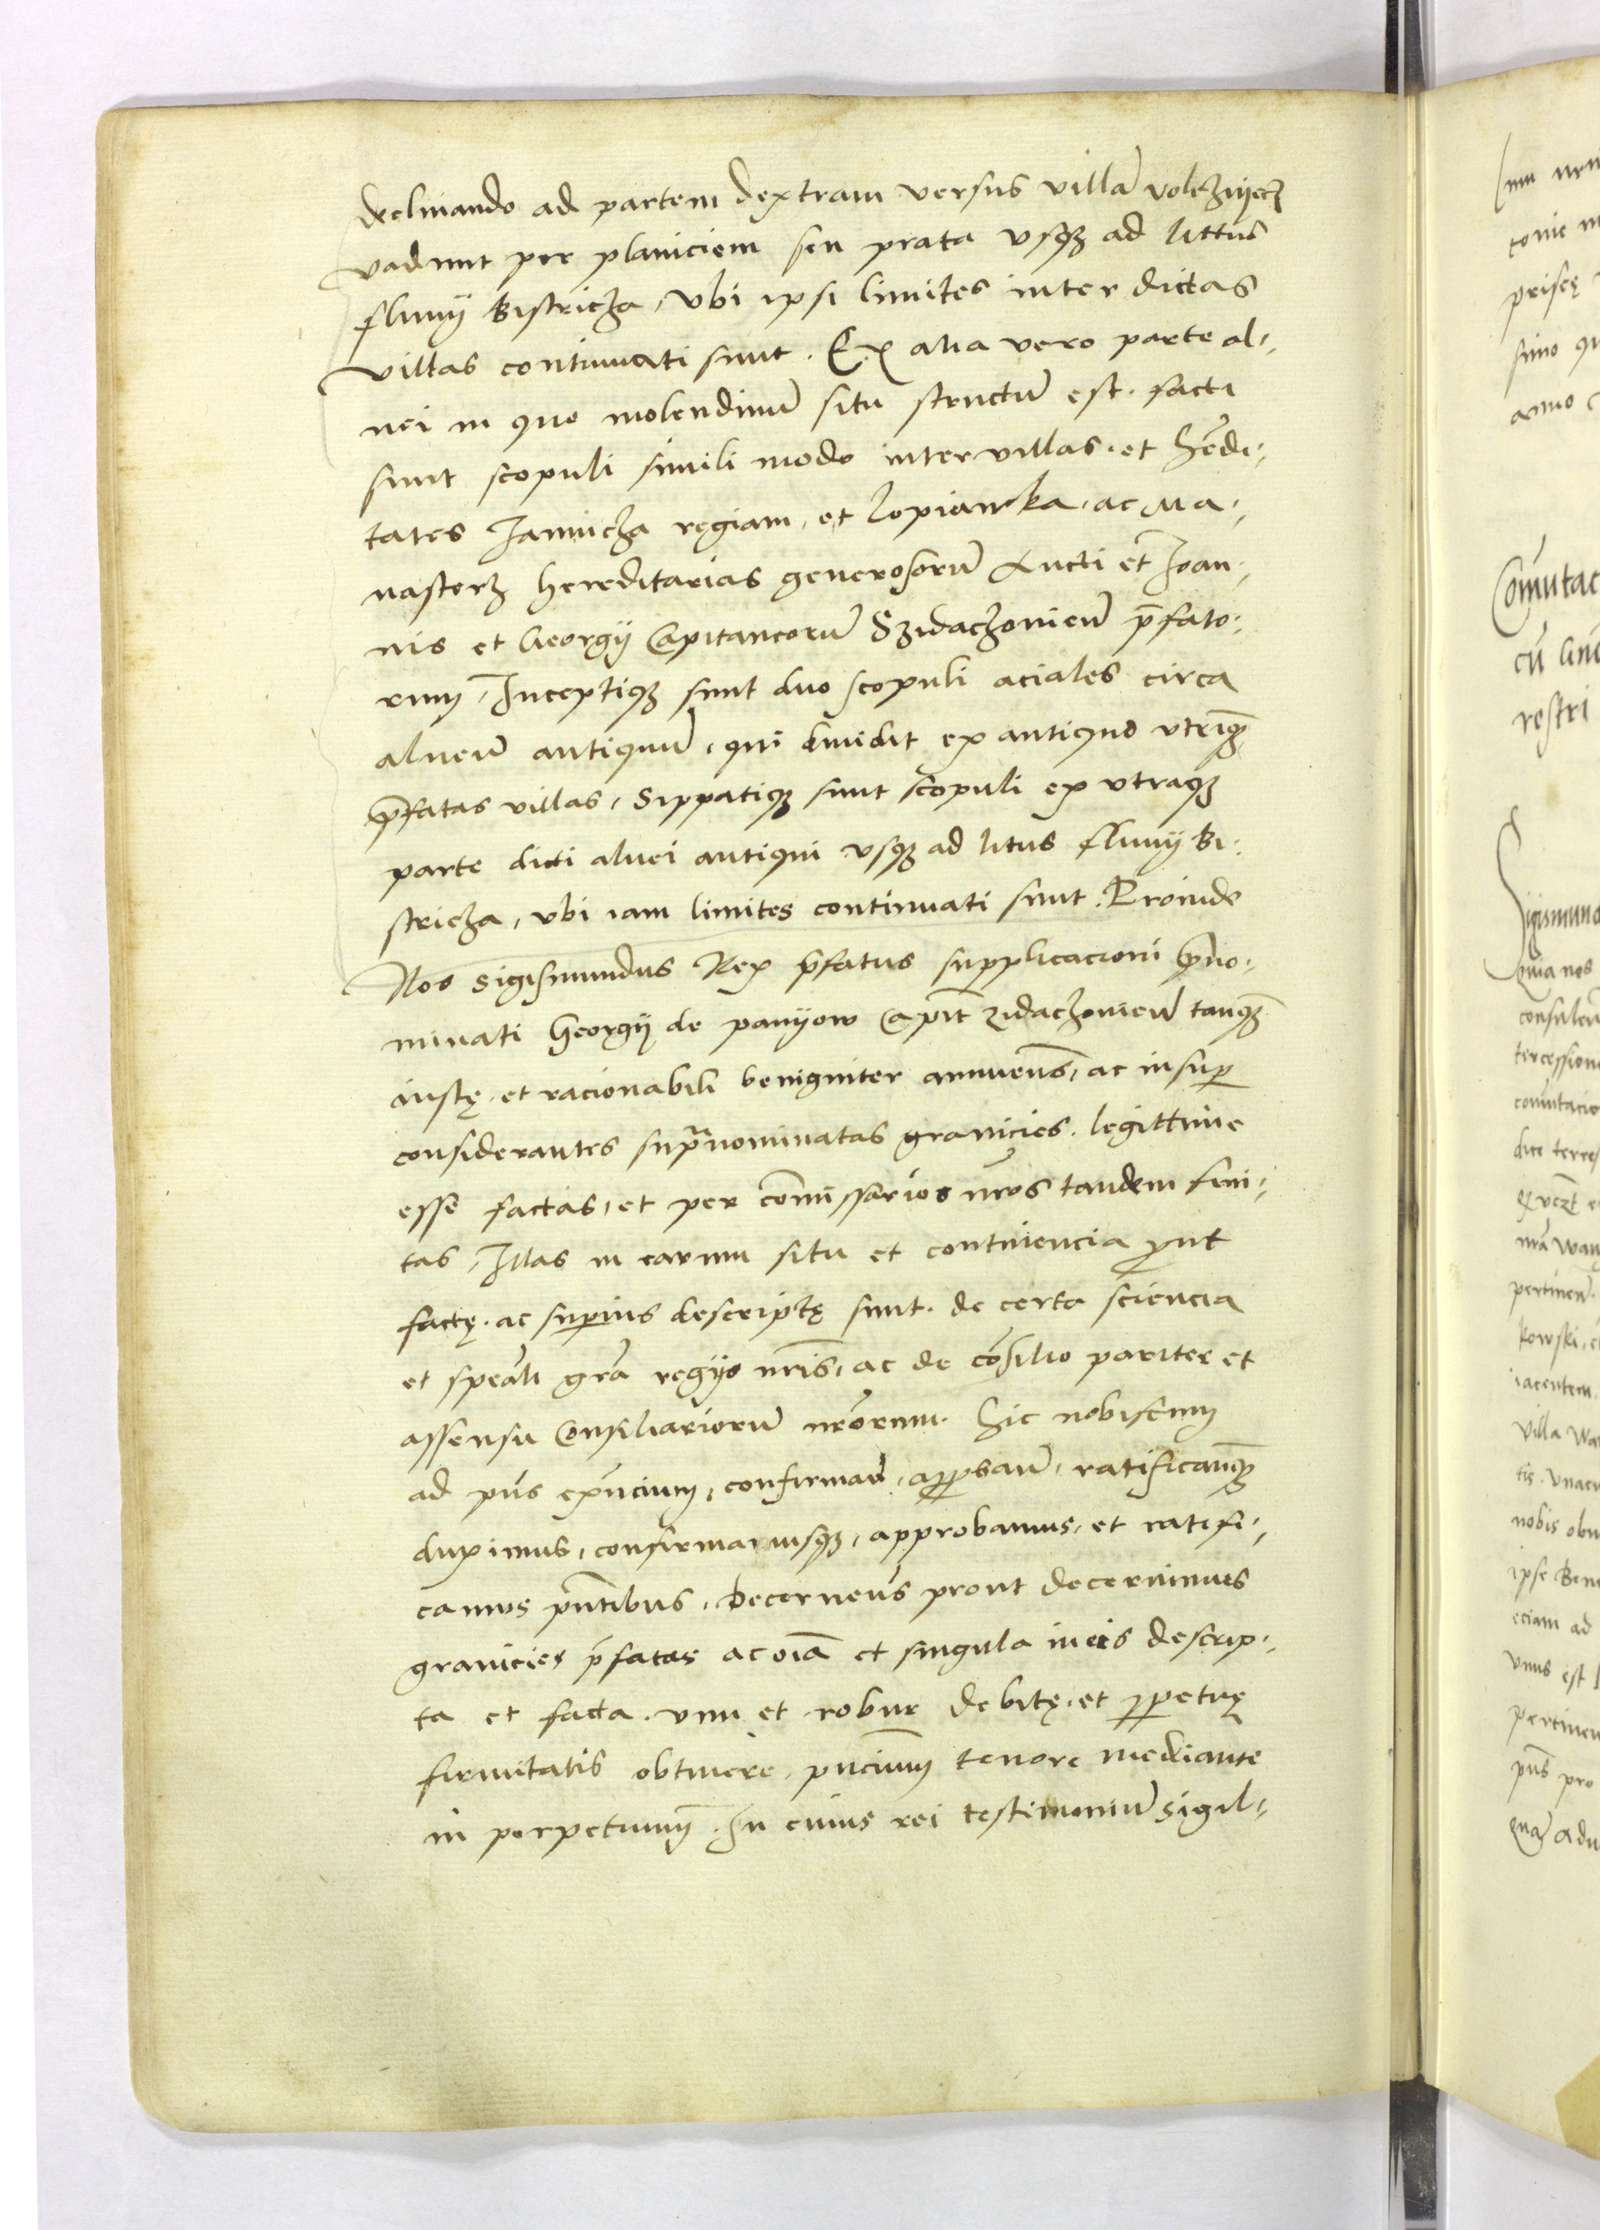 declinando ad partem dextram versus villā volczniecz
vadunt per planiciem seu prata vsqꝫ ad littus
fluuij Bistricza, Vbi ipsi limites inter dictas
villas continuati sunt. Ex alia vero parte al-
uei in quo molendinū situ structū est. facti
sunt scopuli simili modo inter villas. et hēdi-
tates Ianuicza regiam, et Lopianka. ac Ma-
nasterz hereditarias generosorū Aucti et Ioan-
nis et Georgij Capitaneorū Szidaczouien̄ p̄fato-
rum, Inceptiqꝫ sunt duo scopuli aciales circa
alueū antiquū, qui diuidit ex antiquo vtrasqꝫ
p̄fatas villas, Sippatiqꝫ sunt scopuli ex vtraqꝫ
parte dicti aluei antiqui vsqꝫ ad litus fluuij Bi-
stricza, vbi iam limites continuati sunt. Proinde
Nos Sigismundus Rex p̄fatus supplicacioni p̄no-
minati Georgij de panyow Capit̄ zidaczouien̄ tanqꝫ
iustę. et racionabili benigniter annuen̄s, ac insuꝑ
considerantes supranominatas granicies. legittime
esse factas, et per com̄issarios nr̄os tandem fini-
tas, Illas in earum situ et continencia ꝓut
factę. ac suꝑius descriptę sunt. de certa sciencia
et spēali gr̄a regijs nr̄is, ac de cōsilio pariter et
assensu Consiliariorū nr̄orum. hic nobiscum
ad pn̄s exn̄cium, confirmād, aꝓbāū, ratificandasqꝫ
duximus, confirmamusqꝫ, approbamus, et ratifi-
camus pn̄tibus, Decernen̄s prout decernimus
granicies p̄fatas ac oīa et singula in eis descrip-
ta et facta. vim et robur debitę. et ꝑpetuę
firmitatis obtinere, pn̄cium tenore mediante
in perpetuum. In cuius rei testimoniū sigil-